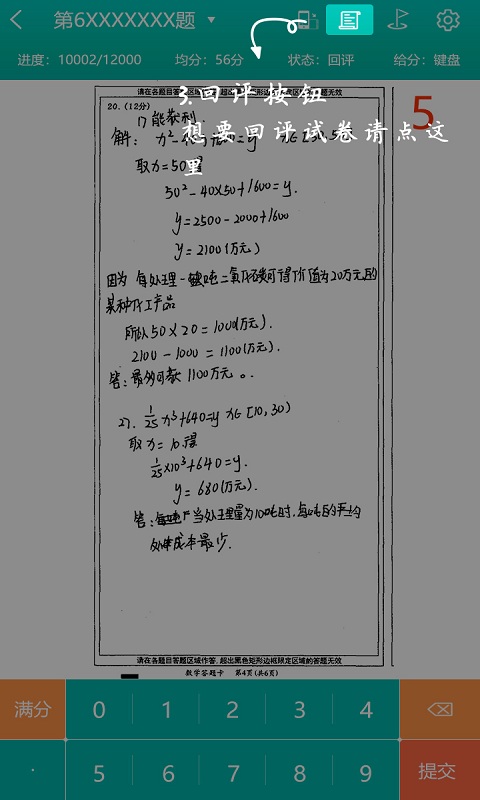 第6XXXXXXX题
进度：10002/12000 均分：56分 状态：回评 给分：键盘
请在各题目答题区域作答，超出黑色矩形边框限定区域的答题无效
3.回评按钮
想要回评试卷请点这里
5
20.（12分）
1) 能获利.
解：
取x=50得
50²-40×50+1600=y.
y=2500-2000+1600
y=2100(万元)
因为每处理一吨二氧化碳可得价值为20万元的
某种化工产品
所以50×20=1000(万元).
2100-1000=1100(万元).
答：最多可获1100万元。
2). 1/25 x³+640=y x∈[10,30)
取x=10得
1/25×10³+640=y.
y=680(万元).
答：当处理量为10吨时，每吨的平均
处理成本最少.
请在各题目答题区域作答，超出黑色矩形边框限定区域的答题无效
数学答题卡 第4页(共6页)
满分 0 1 2 3 4
. 5 6 7 8 9 提交